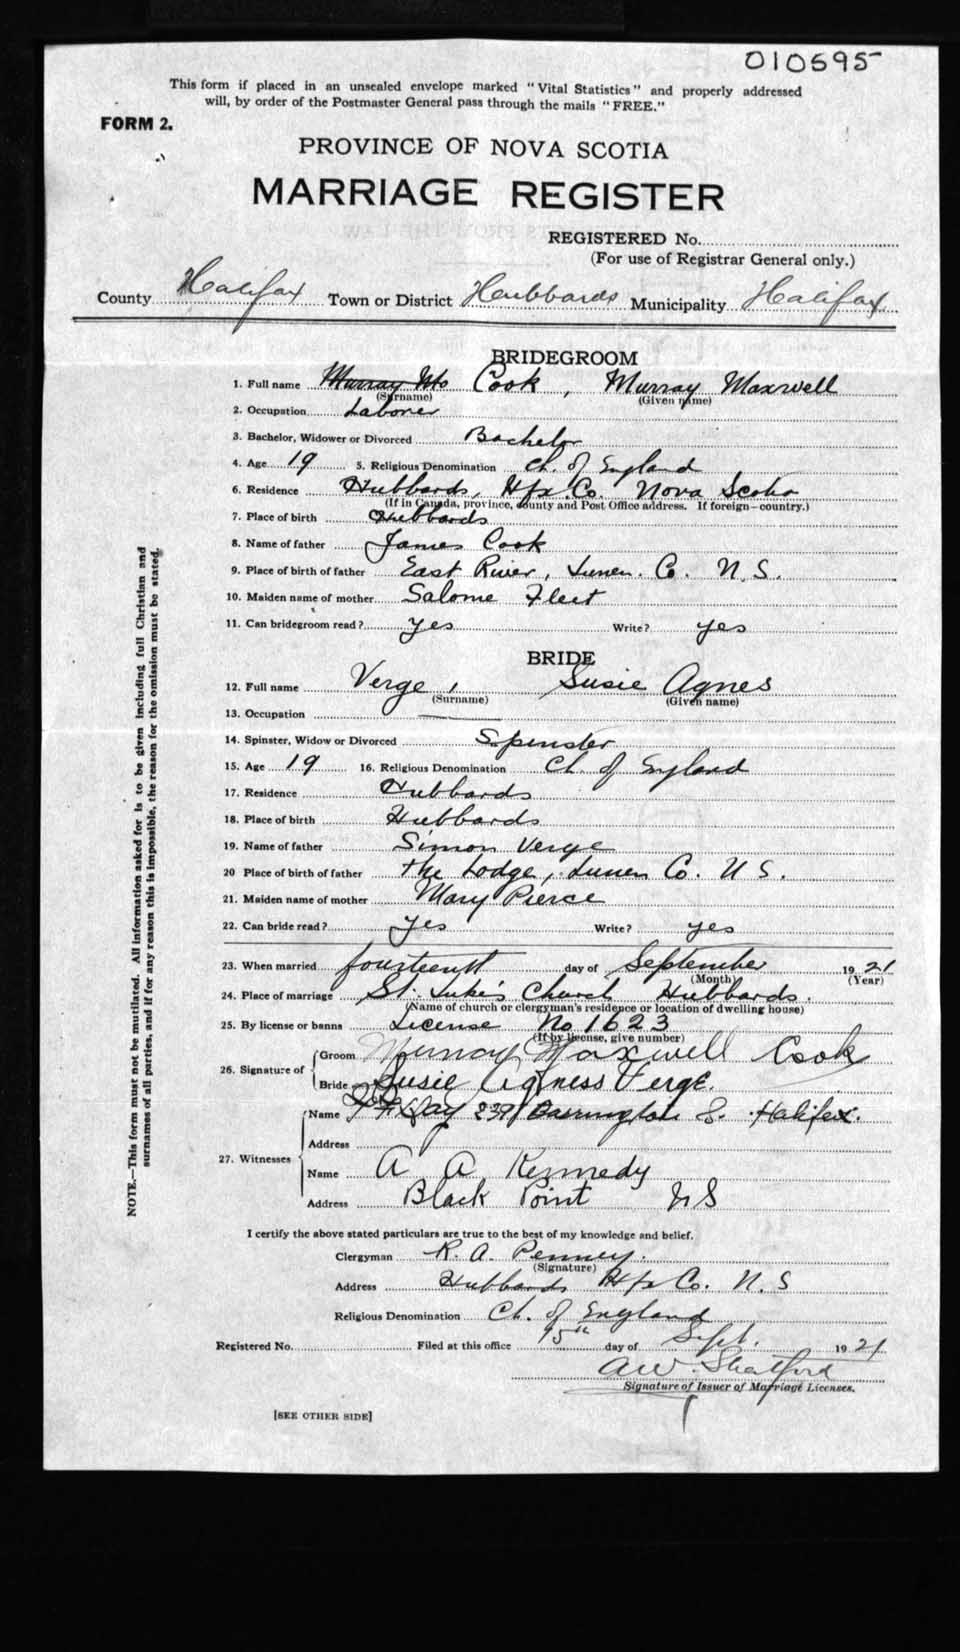 010595
This form if placed in an unsealed envelope marked "Vital Statistics" and properly addressed
will, by order of the Postmaster General pass through the mails "FREE."
FORM 2.
PROVINCE OF NOVA SCOTIA
MARRIAGE REGISTER
REGISTERED No.
(For use of Registrar General only.)
County Halifax Town or District Hubbards Municipality Halifax
BRIDEGROOM
1. Full name Murray Cook, Murray Maxwell
(Surname) (Given name)
2. Occupation Laborer
3. Bachelor, Widower or Divorced Bachelor
4. Age 19 5. Religious Denomination Ch. of England
6. Residence Hubbards, Hfx. Co. Nova Scotia
(If in Canada, province, county and Post Office address. If foreign—country.)
7. Place of birth Hubbards
8. Name of father James Cook
9. Place of birth of father East River, Lunen. Co. N.S.
10. Maiden name of mother Salome Fleet
11. Can bridegroom read? yes Write? yes
BRIDE
12. Full name Verge, Susie Agnes
(Surname) (Given name)
13. Occupation
14. Spinster, Widow or Divorced Spinster
15. Age 19 16. Religious Denomination Ch. of England
17. Residence Hubbards
18. Place of birth Hubbards
19. Name of father Simon Verge
20 Place of birth of father The Lodge, Lunen Co. N S.
21. Maiden name of mother Mary Pierce
22. Can bride read? yes Write? yes
23. When married fourteenth day of September 1921
(Month) (Year)
24. Place of marriage St. Luke's Church Hubbards.
(Name of church or clergyman's residence or location of dwelling house)
25. By license or banns License No 1623
(If by license, give number)
26. Signature of
Groom Murray Maxwell Cook
Bride Susie Agness Verge.
27. Witnesses
Name Day 239 Barrington S. Halifax.
Address
Name A A Kennedy
Address Black Point N S
I certify the above stated particulars are true to the best of my knowledge and belief.
Clergyman R. A. Penney.
(Signature)
Address Hubbards Hfx Co. N. S
Religious Denomination Ch. of England
Registered No. Filed at this office 15th day of Sept. 1921
AW. Shatford
Signature of Issuer of Marriage Licenses.
[SEE OTHER SIDE]
NOTE.—This form must not be mutilated. All information asked for is to be given including full Christian and
surnames of all parties, and if for any reason this is impossible, the reason for the omission must be stated.